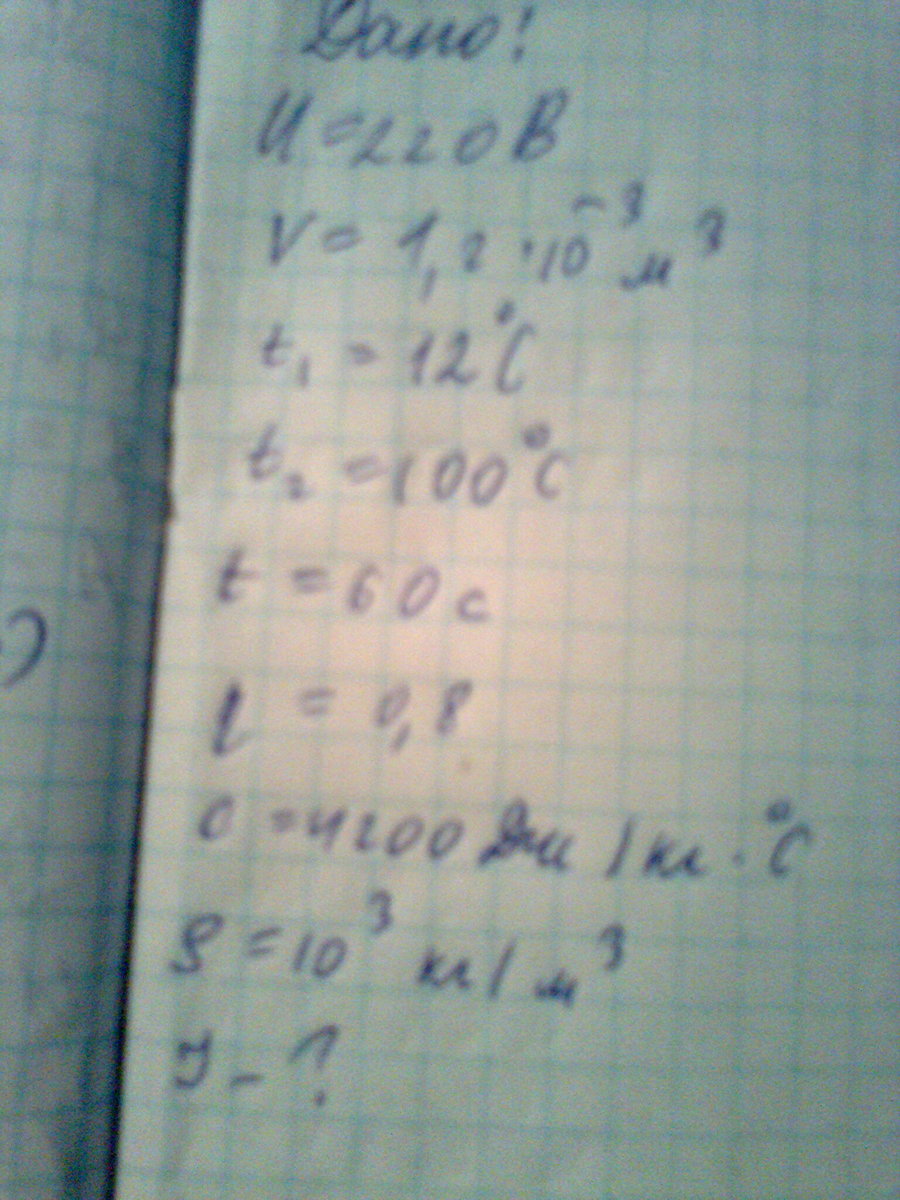 Дано:
U = 220 В
V = 1,2 · 10⁻³ м³
t₁ = 12°C
t₂ = 100°C
t = 60 с
η = 0,8
c = 4200 Дж / кг · °C
ρ = 10³ кг / м³
J - ?